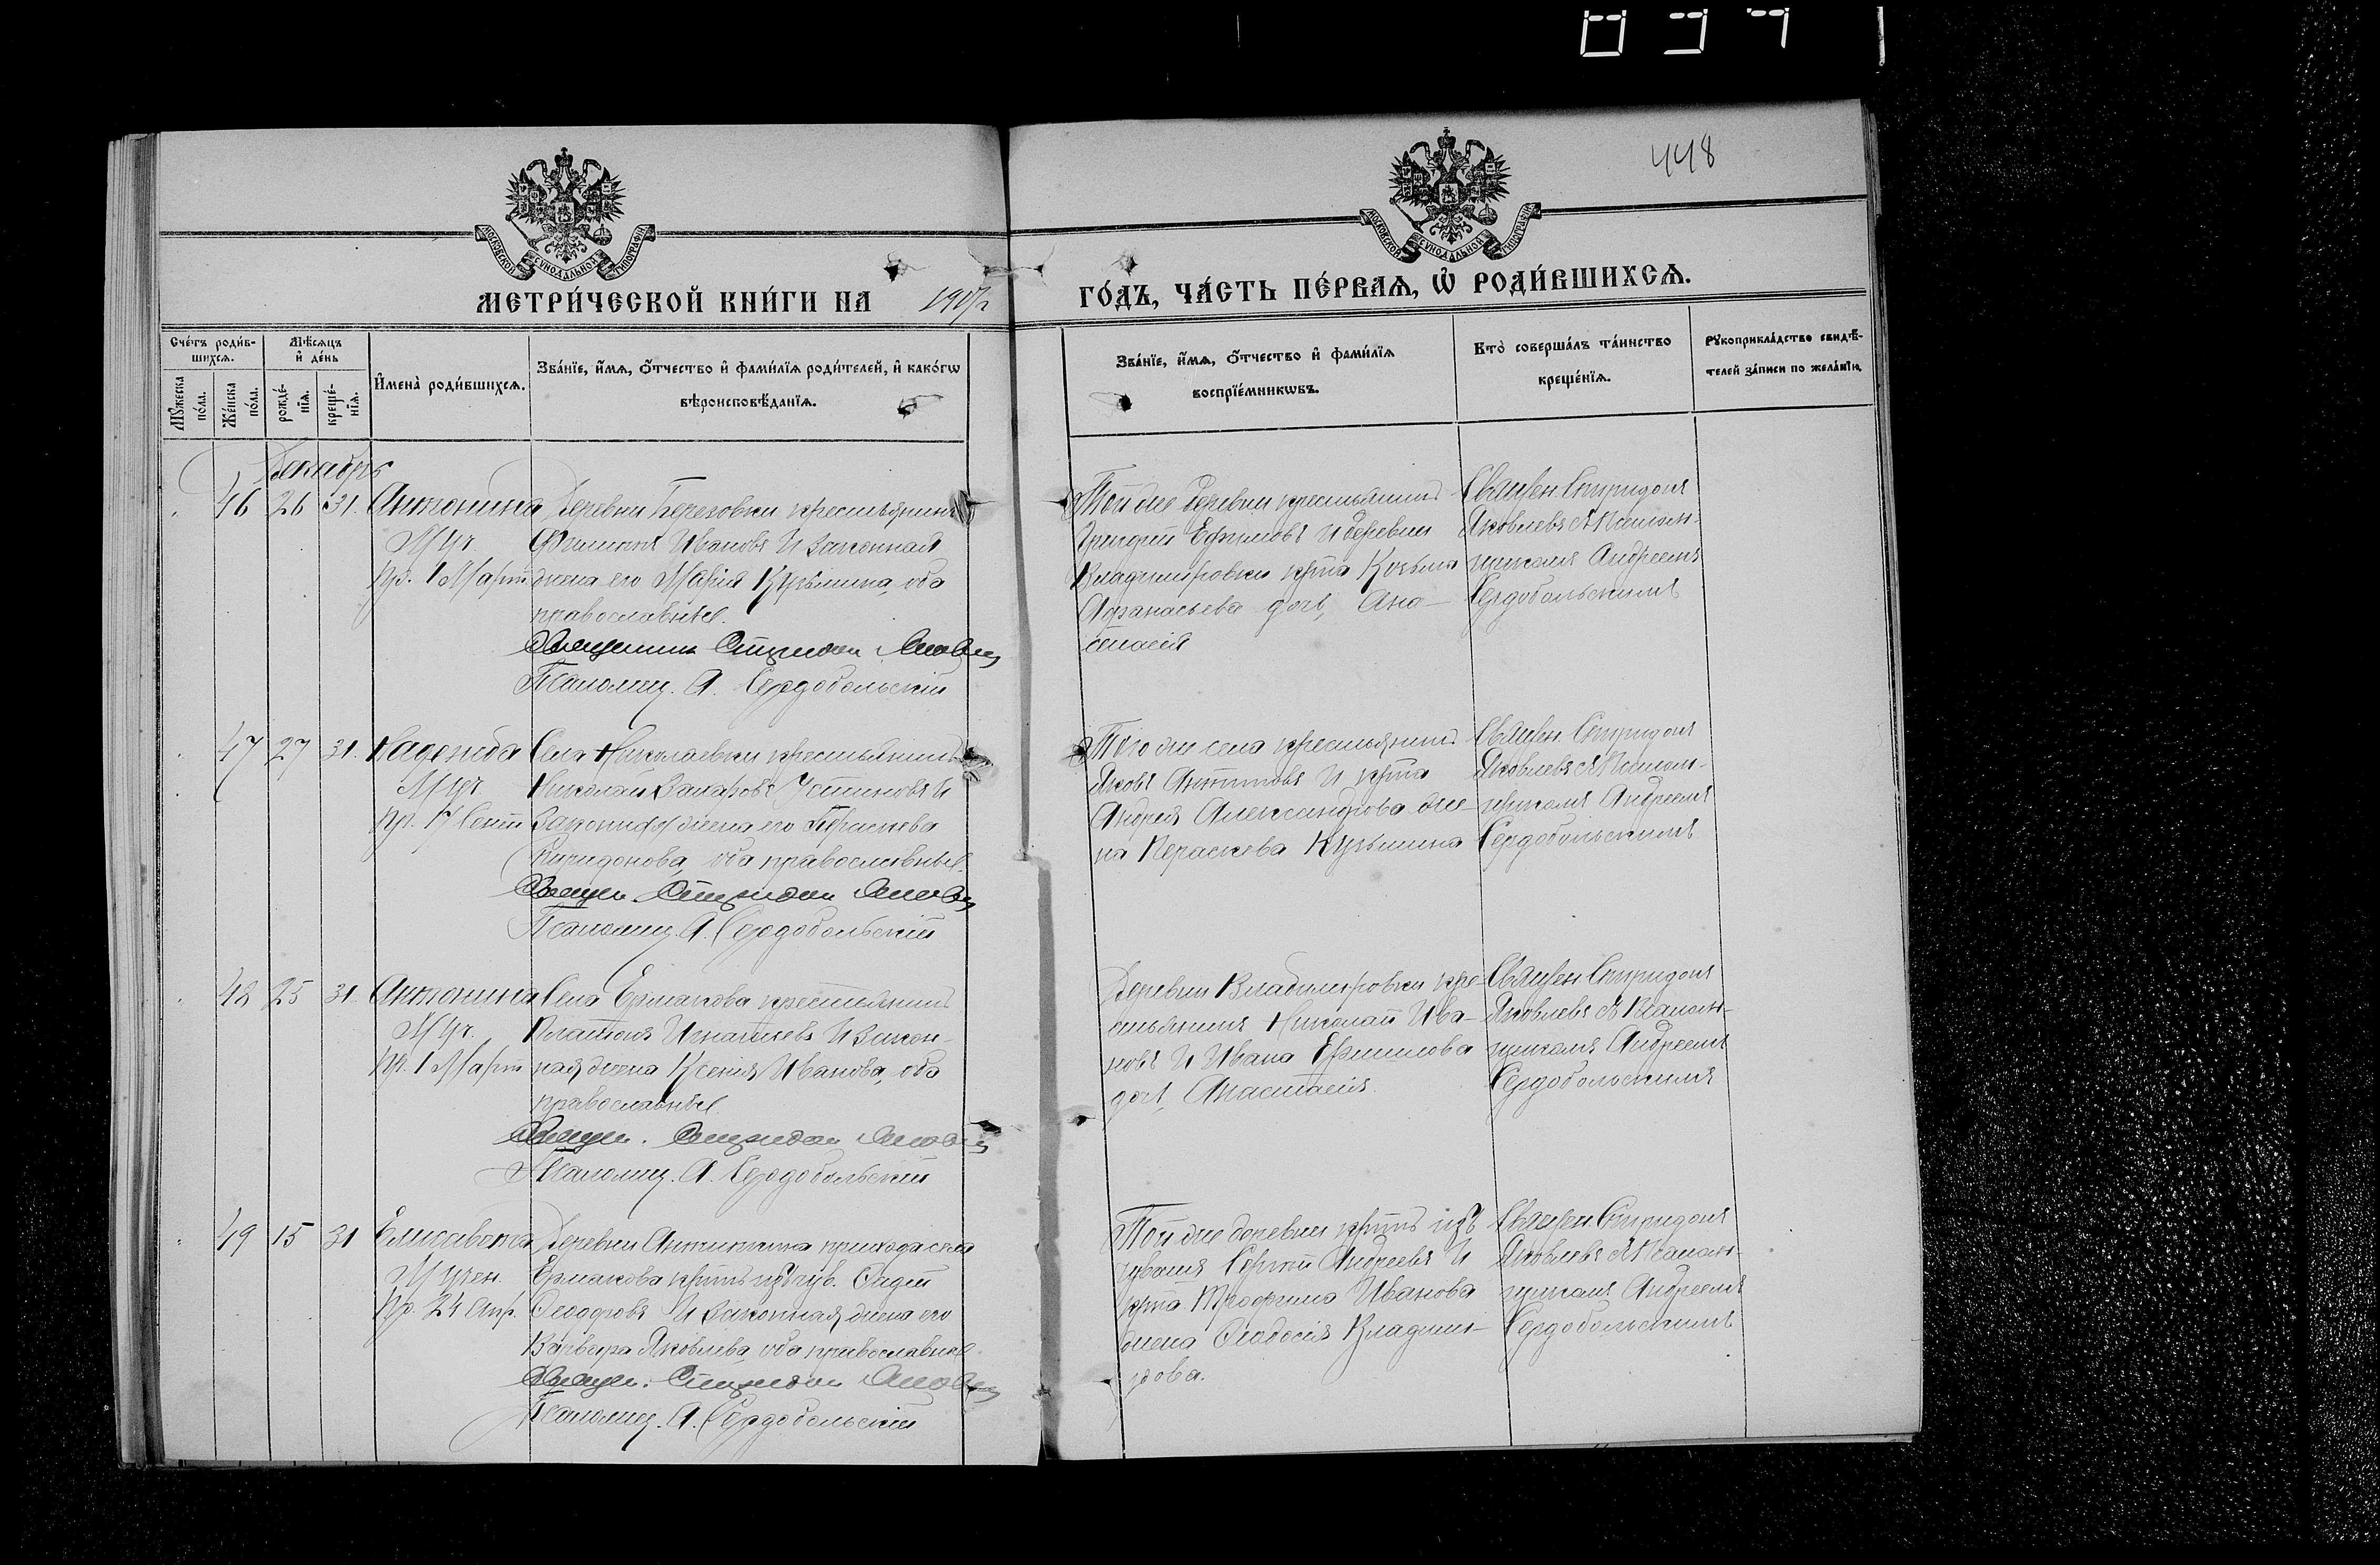 448
МОСКОВСКОЙ СѴНОДАЛЬНОЙ ТИПОГРАФІИ
МОСКОВСКОЙ СѴНОДАЛЬНОЙ ТИПОГРАФІИ
МЕТРИ́ЧЕСКОЙ КНИ́ГИ НА
ГО́ДЪ, ЧА́СТЬ ПЕ́РВАѦ, Ѽ РОДИ́ВШИХСѦ.
Сче́тъ роди́в-
шихсѧ.
Мѣ́сѧцъ
и҆ де́нь
Мꙋ́жеска
по́ла.
Же́нска
по́ла.
рожде́-
нїѧ.
креще́-
нїѧ.
И҆мена̀ роди́вшихсѧ.
Зва́нїе, и҆́мѧ, ѻ҆́тчество и҆ фами́лїѧ роди́телей, и҆ како́гѡ
вѣроисповѣ́данїѧ.
Зва́нїе, и҆́мѧ, ѻ҆́тчество и҆ фами́лїѧ
воспрїе́мникѡвъ.
Кто̀ соверша́лъ та́инство
креще́нїѧ.
Рꙋкоприкла́дство свидѣ́-
телей за́писи по жела́нїю.
Декабрь
46 26 31. Антонина
Муч.
Пр. 1 Март
Деревни Березовки крестьянинъ
Филиппъ Ивановъ и законная
жена его Марія Кузьмина, оба
православные.
Священникъ Спиридон Яковлев
Псаломщ. А. Сердобольскій
Той же деревни крестьянинъ
Григорій Ефимовъ и деревни
Владимировки крта Козьмы
Афанасьева дочь, Ана-
стасія
Священ. Спиридонъ
Яковлевъ съ Псалом-
щикомъ Андреемъ
Сердобольскимъ
47 27 31. Надежда
Муч.
Пр. 17 Сент
Села Николаевки крестьянинъ
Николай Захаровъ Устиновъ и
законная жена его Параскева
Спиридонова, оба православные.
Священ. Спиридон Яковлев
Псаломщ. А. Сердобольскій
Того же села крестьянинъ
Яковъ Антиповъ и крта
Андрея Александрова же-
на Параскева Кузьмина
Священ. Спиридонъ
Яковлевъ съ Псалом-
щикомъ Андреемъ
Сердобольскимъ
48 25 31. Антонина
Муч.
Пр. 1 Март
Села Ермакова крестьянинъ
Платонъ Игнатьевъ и закон-
ная жена Ксенія Иванова, оба
православные
Священ. Спиридон Яковлев
Псаломщ. А. Сердобольскій
Деревни Владимировки кре-
стьянинъ Николай Ива-
новъ и Ивана Ефимова
дочь, Анастасія.
Священ. Спиридонъ
Яковлевъ съ Псалом-
щикомъ Андреемъ
Сердобольскимъ
49 15 31 Елисавета
Мучен.
Пр. 24 Апр.
Деревни прихода села
Ермакова кртнъ изъ чув.
Ѳеодоровъ и законная жена его
Варвара Яковлева, оба православные
Священ. Спиридон Яковлев
Псаломщ. А. Сердобольскій
Той же деревни кртнъ изъ
чувашъ Сергій Андреевъ и
крта Трофима Иванова
жена Ѳеодосія
Священ. Спиридонъ
Яковлевъ съ Псалом-
щикомъ Андреемъ
Сердобольскимъ